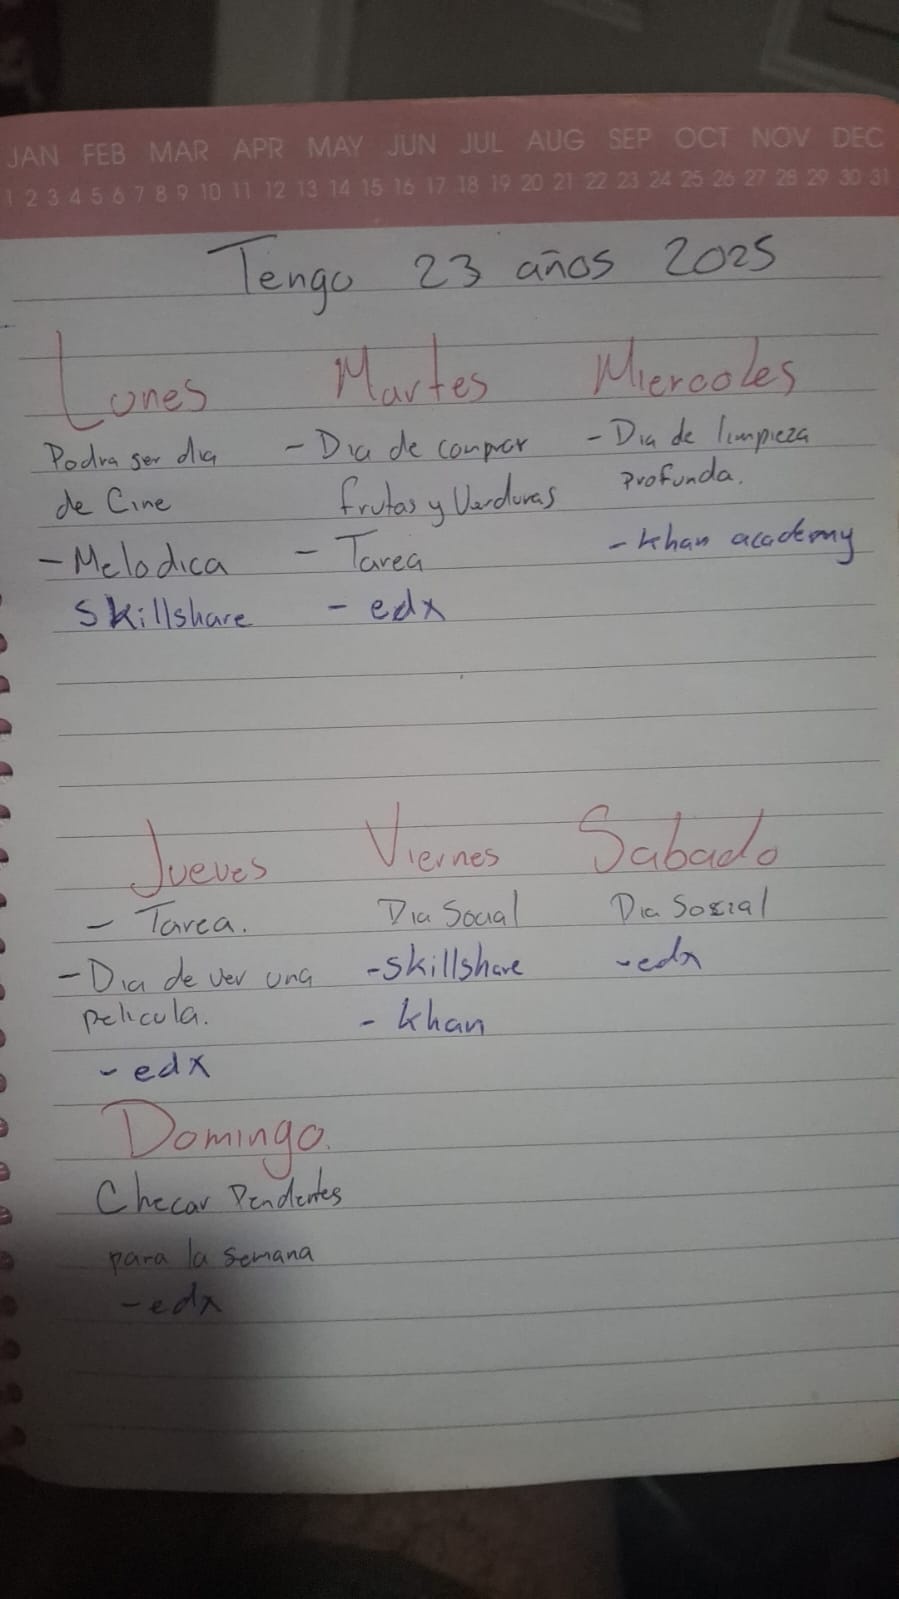 JAN FEB MAR APR MAY JUN JUL AUG SEP OCT NOV DEC
1 2 3 4 5 6 7 8 9 10 11 12 13 14 15 16 17 18 19 20 21 22 23 24 25 26 27 28 29 30 31
Tengo 23 años 2025
Lunes
Podra ser dia
de Cine
- Melodica
Skillshare
Martes
- Dia de comprar
frutas y Verduras
- Tarea
- edx
Miercoles
- Dia de limpieza
profunda.
- khan academy
Jueves
- Tarea.
- Dia de ver una
pelicula.
- edx
Viernes
Dia Social
- skillshare
- khan
Sabado
Dia Social
- edx
Domingo.
Checar Pendientes
para la semana
- edx